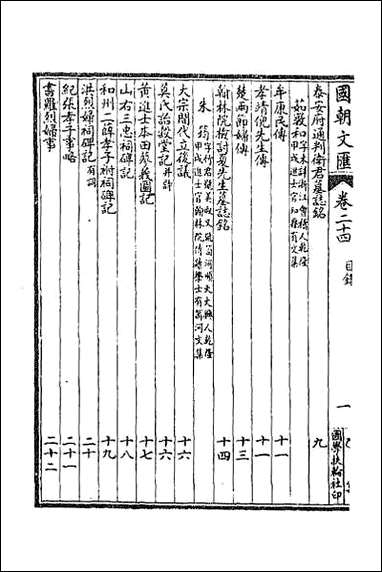 國朝文匯 卷二十四 目錄 一 國學扶輪社印
泰安府通判衛君墓誌銘 九
茹敦和 字未詳浙江會稽人乾隆甲戌進士官知府有文集
年康民傳 十一
孝靖倪先生傳 十一
楚兩節婦傳 十三
翰林院檢討夏先生墓誌銘 十四
朱筠 字竹君號美叔又號笥河順天大興人乾隆甲戌進士官翰林院侍讀學士有笥河文集
大宗間代立後議 十六
莫氏詒穀堂記 并詩 十六
黃進士本田蔡義園記 十七
山右三忠祠碑記 十八
和州二薛孝子祔祠碑記 十九
洪烈婦祠碑記 有詞 二十
紀張孝子事略 二十一
書羅烈婦事 二十二